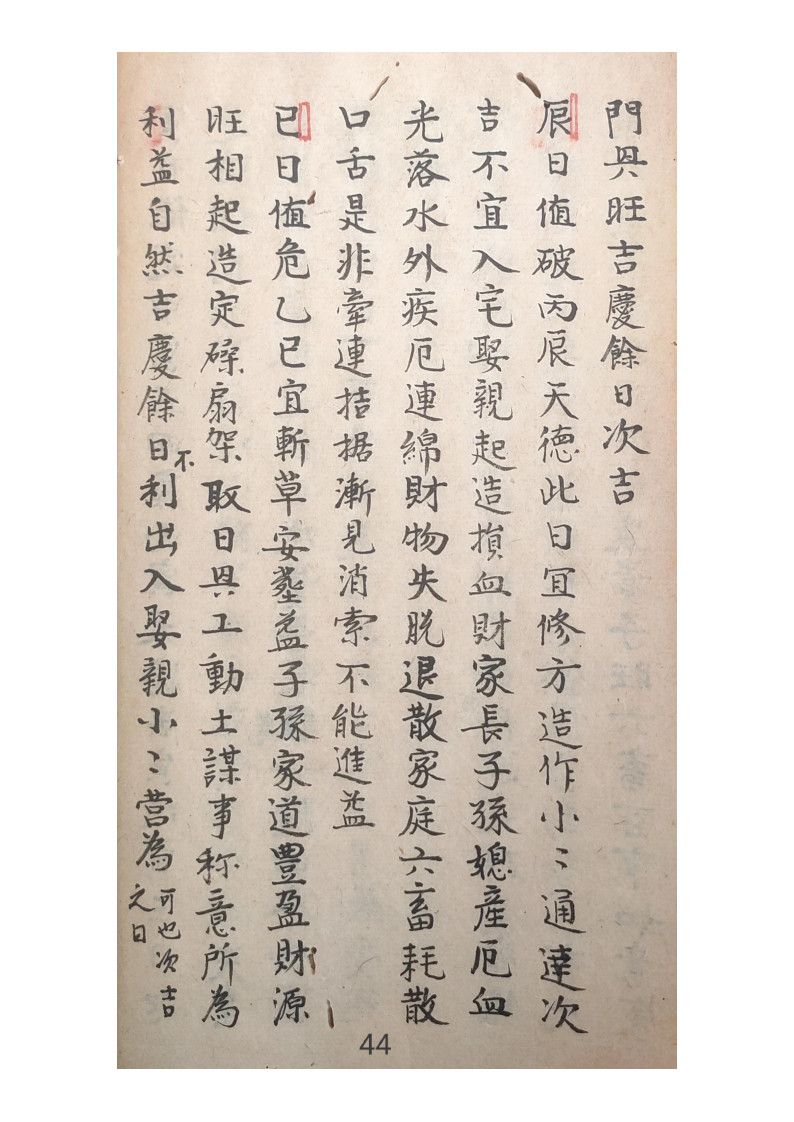 門興旺吉慶餘日次吉
辰日值破丙辰天德此日宜修方造作小〻通達次
吉不宜入宅娶親起造損血財家長子孫媳產厄血
光落水外疾厄連綿財物失脫退散家庭六畜耗散
口舌是非牽連拮据漸見消索不能進益
巳日值危乙巳宜斬草安葬益子孫家道豐盈財源
旺相起造定磉扇架取日興工動土謀事称意所為
利益自然吉慶餘日不利出入娶親小〻营為可也次吉
之日
44